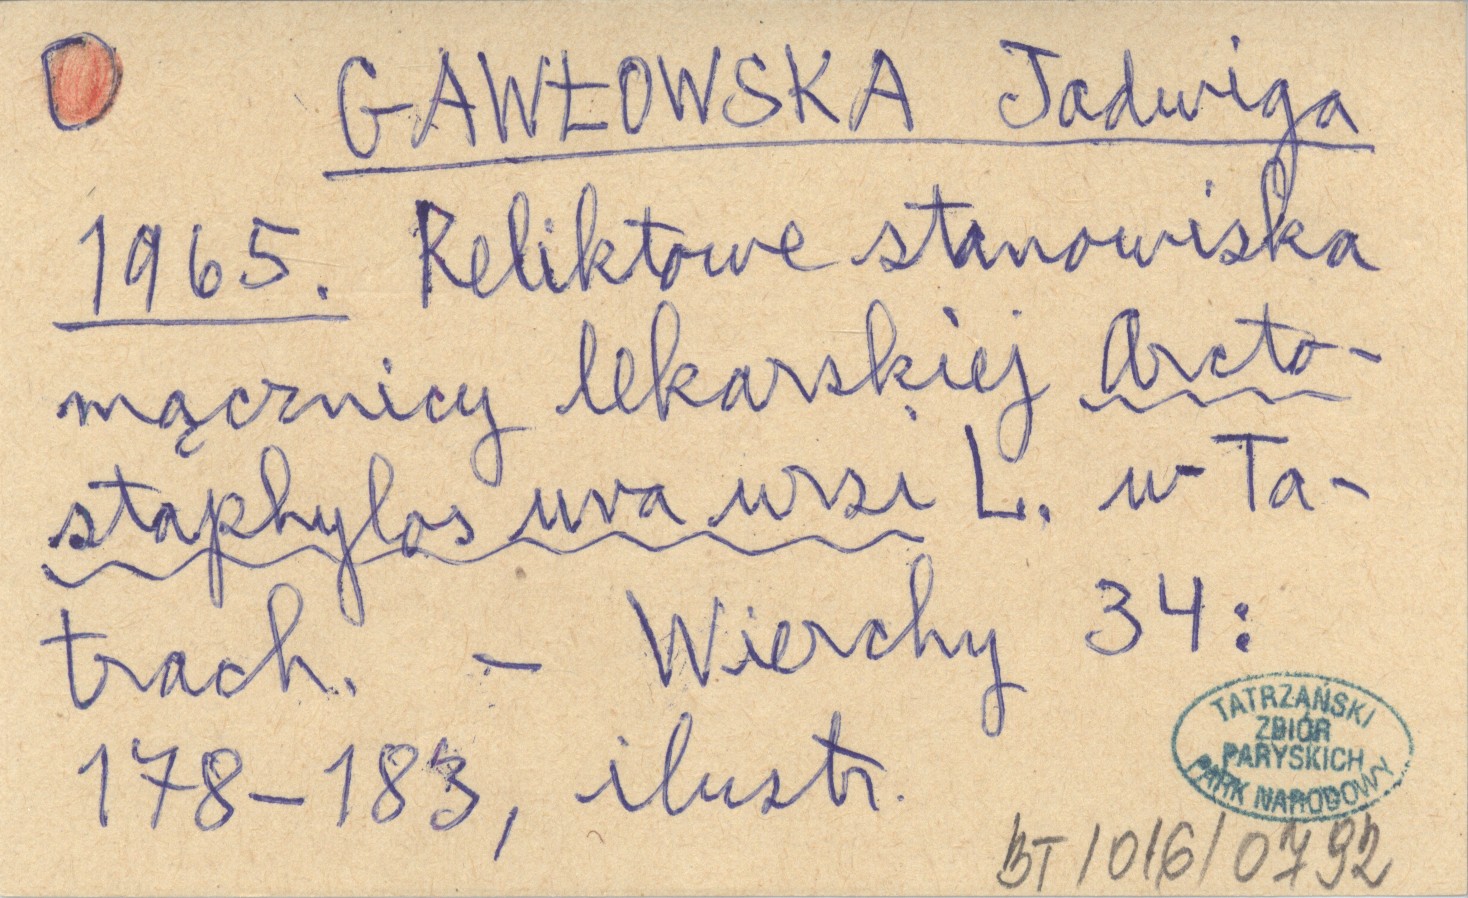 GAWŁOWSKA Jadwiga
1965. Reliktowe stanowiska
mącznicy lekarskiej Arcto-
staphylos uva ursi L. w Ta-
trach. - Wierchy 34:
178-183, ilustr.
TATRZAŃSKI
ZBIÓR
PARYSKICH
PARK NARODOWY
BT/016/0792